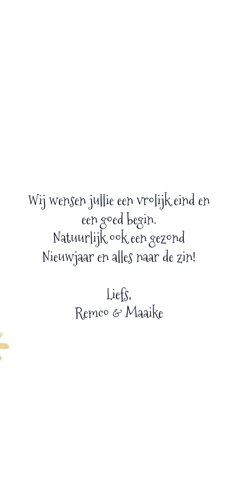 Wij wensen jullie een vrolijk eind en
een goed begin.
Natuurlijk ook een gezond
Nieuwjaar en alles naar de zin!
Liefs,
Remco & Maaike